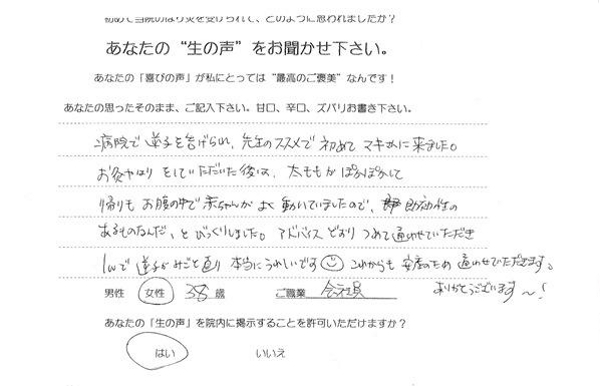 初めて当院のはり灸を受けられて、どのように思われましたか？
あなたの“生の声”をお聞かせ下さい。
あなたの「喜びの声」が私にとっては“最高のご褒美”なんです！
あなたの思ったそのまま、ご記入下さい。甘口、辛口、ズバリお書き下さい。
病院で逆子を告げられ、先生のススメで初めて マキ に来ました。
お灸やはり をしていただいた後は、太ももがぽかぽかして
帰りも お腹の中で赤ちゃんがよく動いていましたので、即効性の
あるものなんだ、と びっくりしました。アドバイス どおり つめて通わせていただき
1wで 逆子がみごと直り 本当にうれしいです これからも 安産のため 通わせていただきます。
ありがとうございます〜！
男性 女性 38歳 ご職業 会社員
あなたの「生の声」を院内に掲示することを許可いただけますか？
はい いいえ